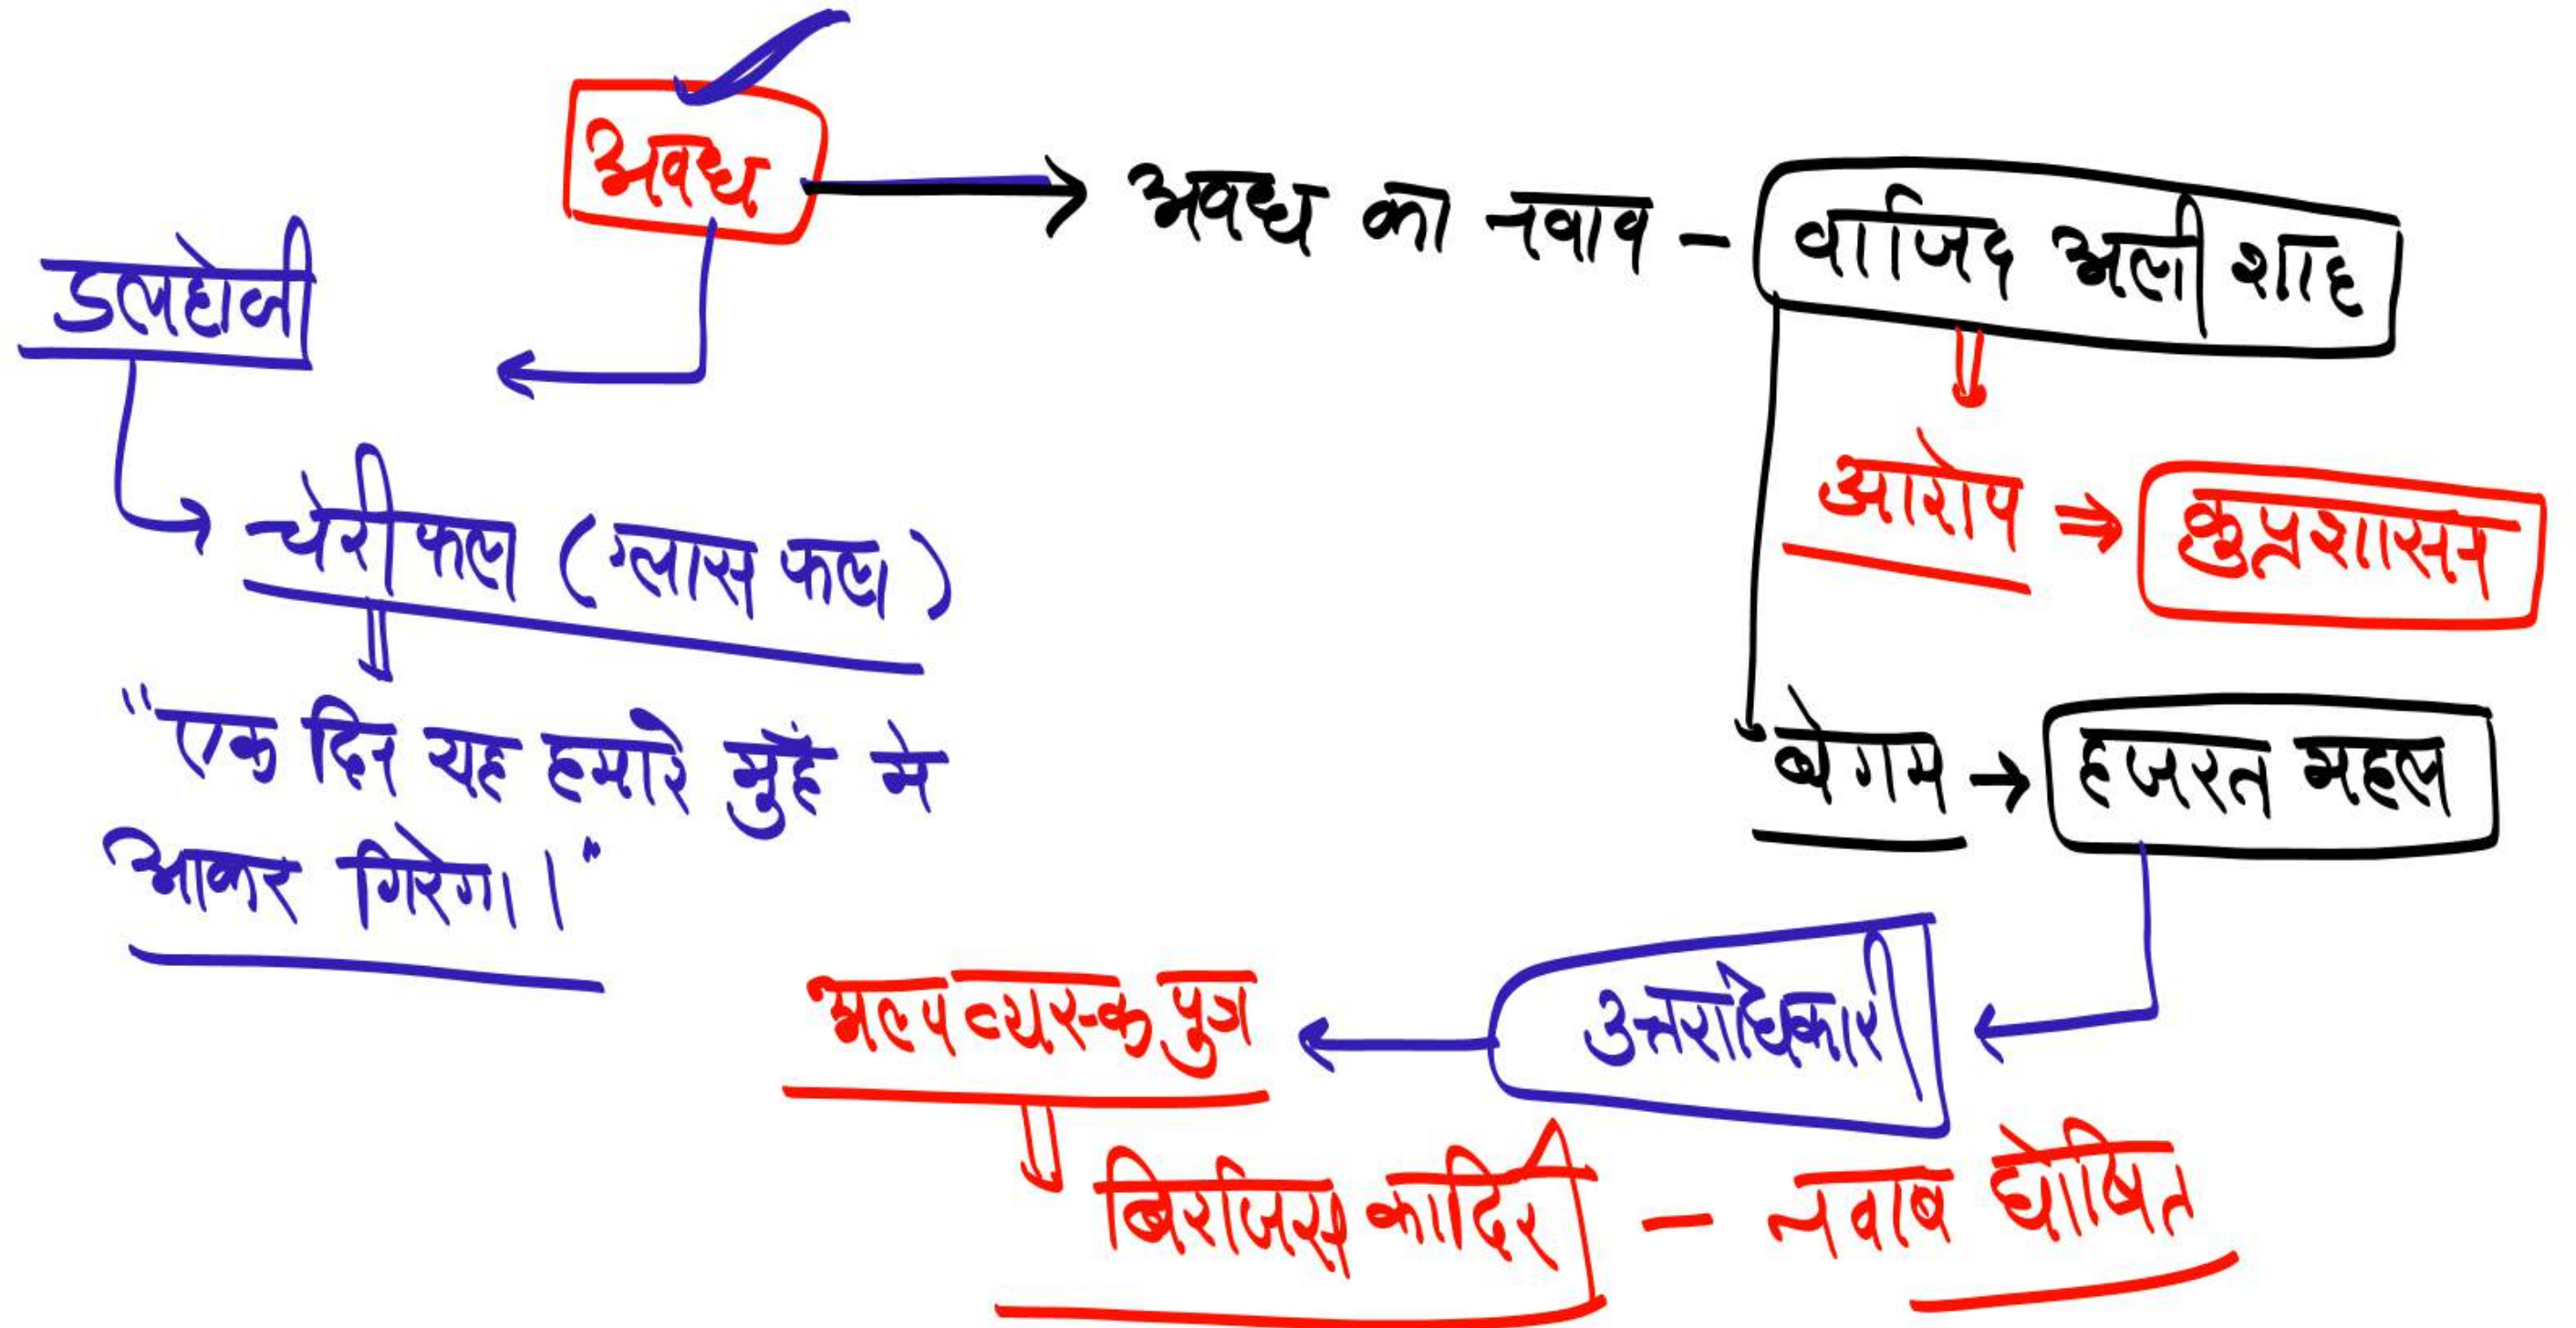 अवध
अवध का नवाव - वाजिद अली शाह
डलहोजी
आरोप ⇒ कुप्रशासन
→ चेरी फल (ग्लास फल)
"एक दिन यह हमारे मुहँ मे
आकर गिरेगा।"
बेगम → हजरत महल
उत्तराधिकारी
अल्पव्यस्क पुत्र
बिरजिस कादिर - नवाब घोषित